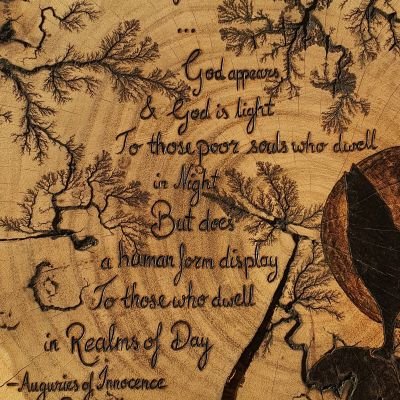 ...
God appears,
& God is light
To those poor souls who dwell
in Night
But does
a human form display
To those who dwell
in Realms of Day
—Auguries of Innocence